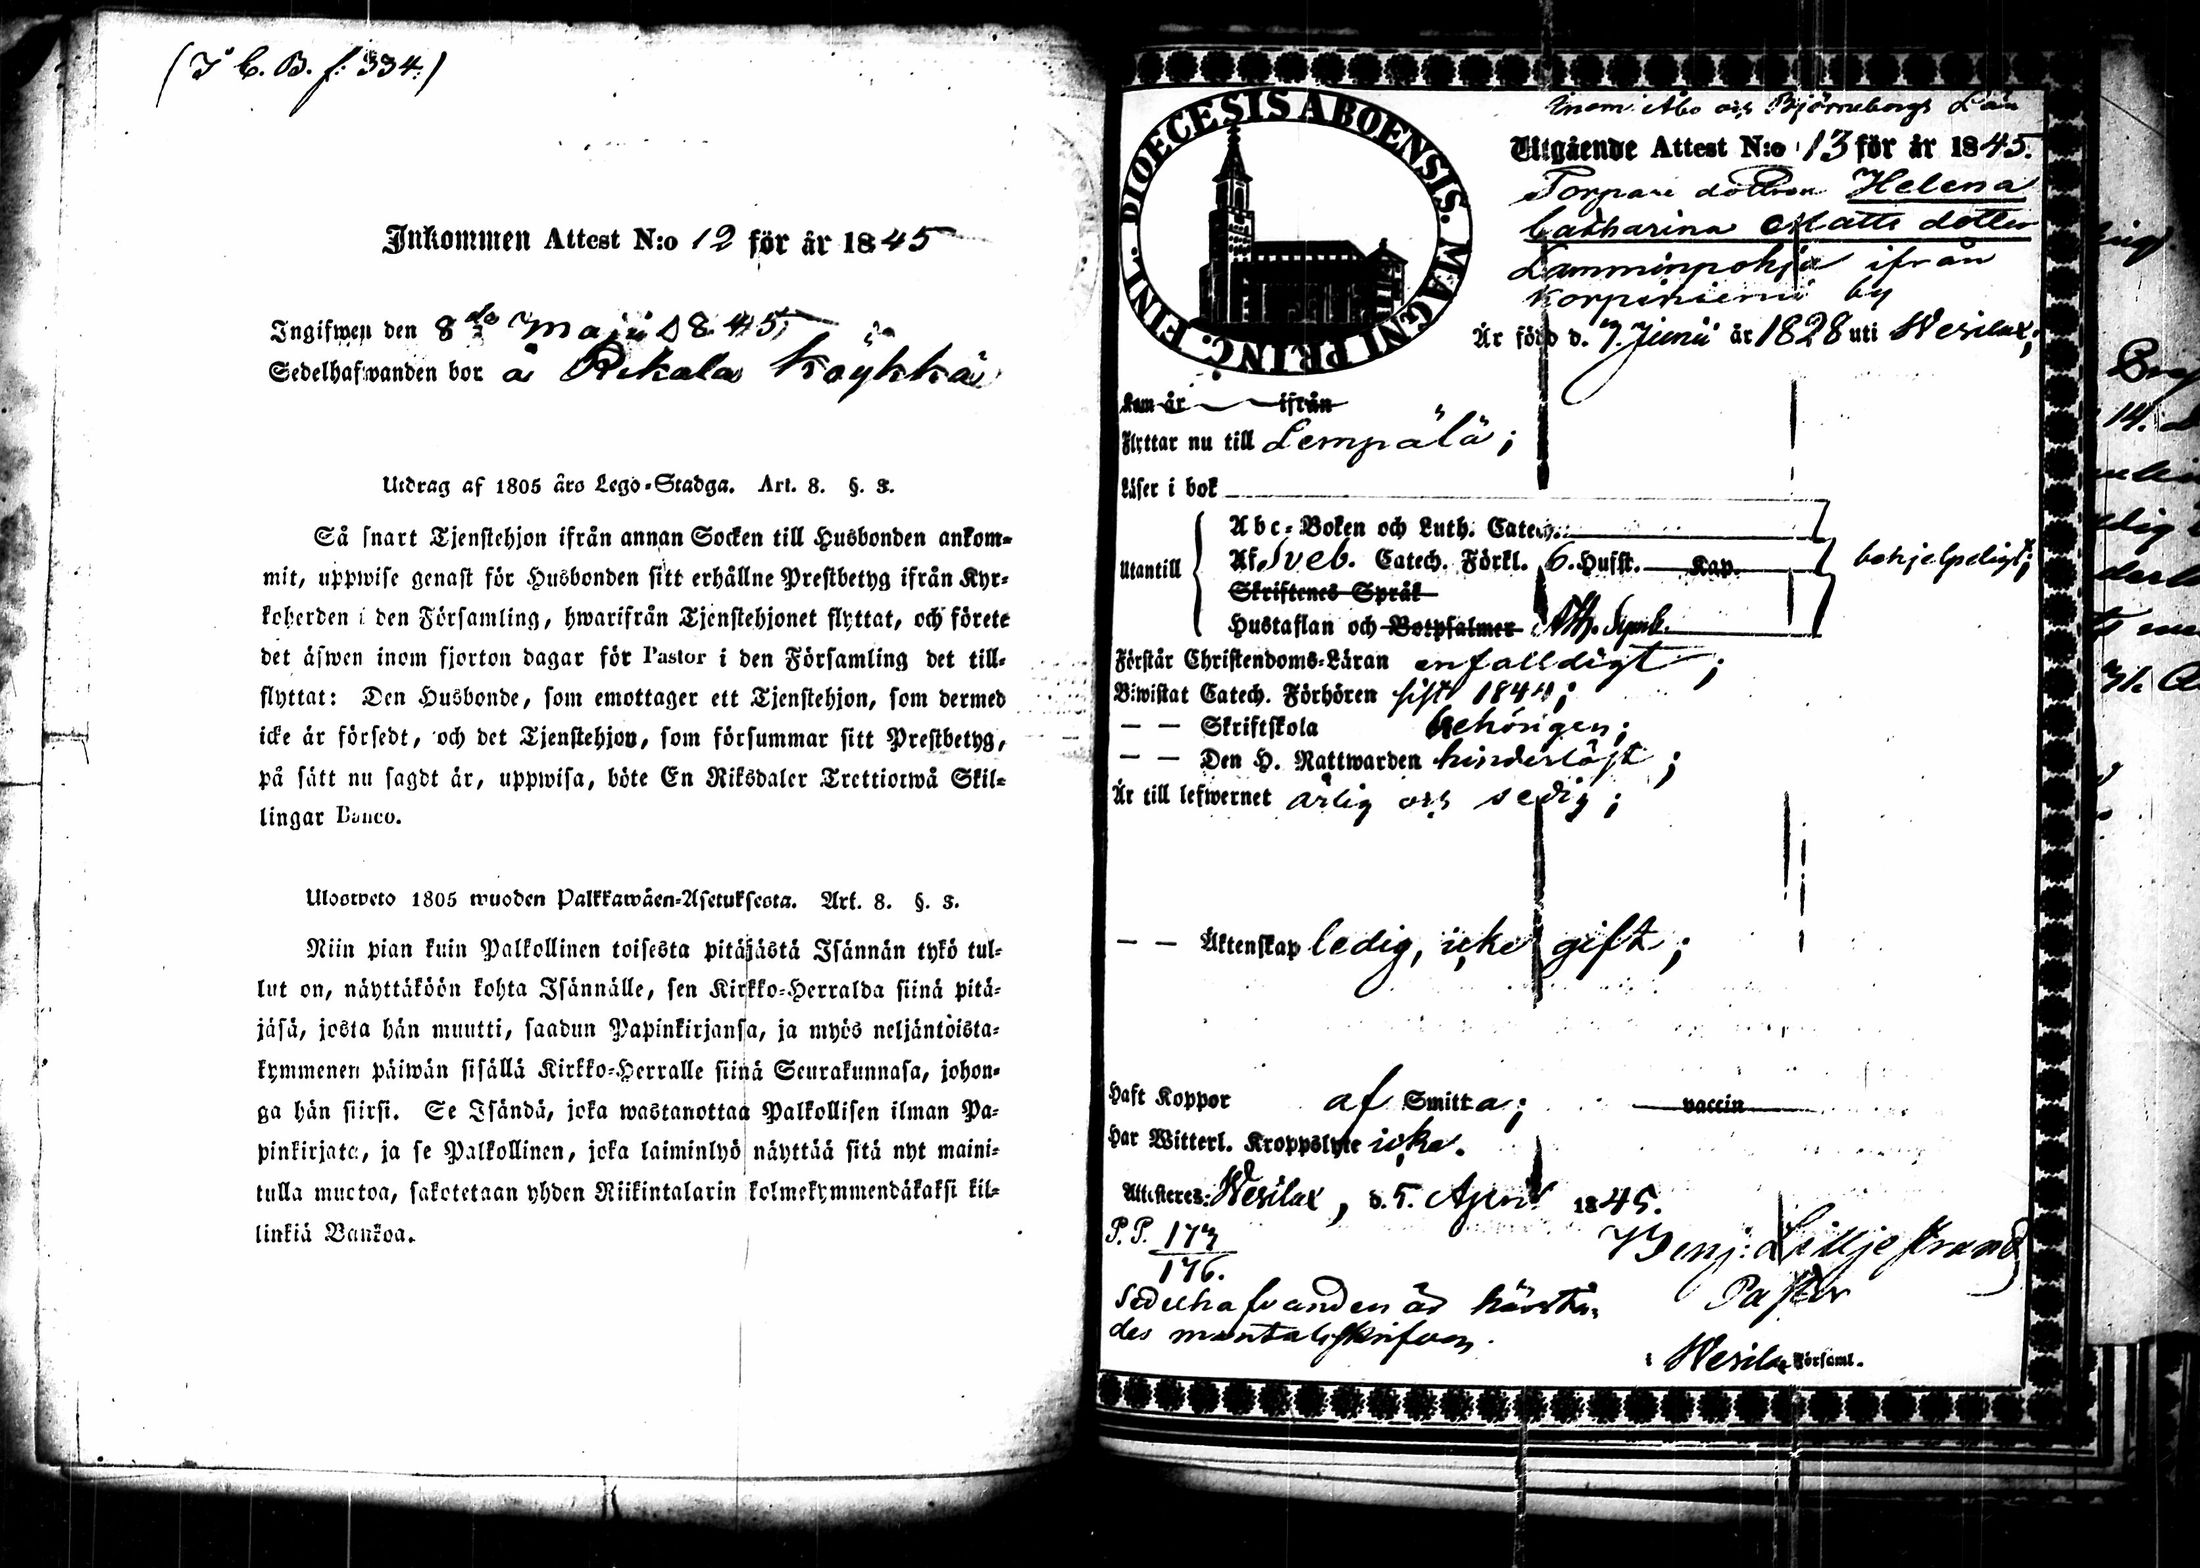 (I C. B. f. 334.)
Inkommen Attest N:o 12 för år 1845
Ingifwen den 8de Maji 1845
Sedelhafwanden bor å Rekala Köykkä
Utdrag af 1805 års Lego-Stadga. Art. 8. §. 3.
Så snart Tjenstehjon ifrån annan Socken till Husbonden ankom-
mit, uppwise genast för Husbonden sitt erhållne Prestbetyg ifrån Kyr-
koherden i den Församling, hwarifrån Tjenstehjonet flyttat, och förete
det äfwen inom fjorton dagar för Pastor i den Församling det till-
flyttat: Den Husbonde, som emottager ett Tjenstehjon, som dermed
icke är försedt, och det Tjenstehjon, som försummar sitt Prestbetyg,
på sätt nu sagdt är, uppwisa, böte En Riksdaler Trettiotwå Skil-
lingar Banco.
Ulosweto 1805 wuoden Palkkawäen-Asetuksesta. Art. 8. §. 3.
Niin pian kuin Palkollinen toisesta pitäjästä Isännän tykö tul-
lut on, näyttäköön kohta Isännälle, sen Kirkko-Herralda siinä pitä-
jäsä, josta hän muutti, saadun Papinkirjansa, ja myös neljäntöista-
kymmenen päiwän sisällä Kirkko-Herralle siinä Seurakunnasa, johon-
ga hän siirsi. Se Isändä, joka wastanottaa Palkollisen ilman Pa-
pinkirjata, ja se Palkollinen, joka laiminlyö näyttää sitä nyt maini-
tulla muotoa, sakotetaan yhden Riikintalarin kolmekymmendäkaksi kil-
linkiä Bankoa.
DIOECESIS ABOENSIS. MAGNI PRINC. FINL.
inom Åbo och Björneborgs Län
Utgående Attest N:o 13 för år 1845.
Torpare dottren Helena
Catharina Matts dotter
Lamminpohja ifrån
Korpiniemi by
Är född d. 7 Junii år 1828 uti Wesilax;
Kom år ifrån
Flyttar nu till Lempälä;
Läser i bok
Abc-Boken och Luth. Catech.
Utantill Af Sveb. Catech. Förkl. 6. Hufst. Kap. behjelpeligt;
Skriftenes Språk
Hustaflan och Botpsalmer Ath. Symb.
Förstår Christendoms-Läran enfalldigt;
Biwistat Catech. Förhören sist 1844;
— — Skriftskola behörigen;
— — Den H. Nattwarden hinderlöst;
Är till lefwernet ärlig och sedig;
— — Äktenskap ledig, icke gift;
Haft Koppor af Smitta; vaccin
Har Witterl. Kroppslyte icke.
Attesteres: Wesilax, d. 5. April 1845.
P. P. 173
176.
Benj: Lilljestrand
Pastor
Sedelhafvanden är härstä-
des mantalsskrifven.
i Wesilax Församl.